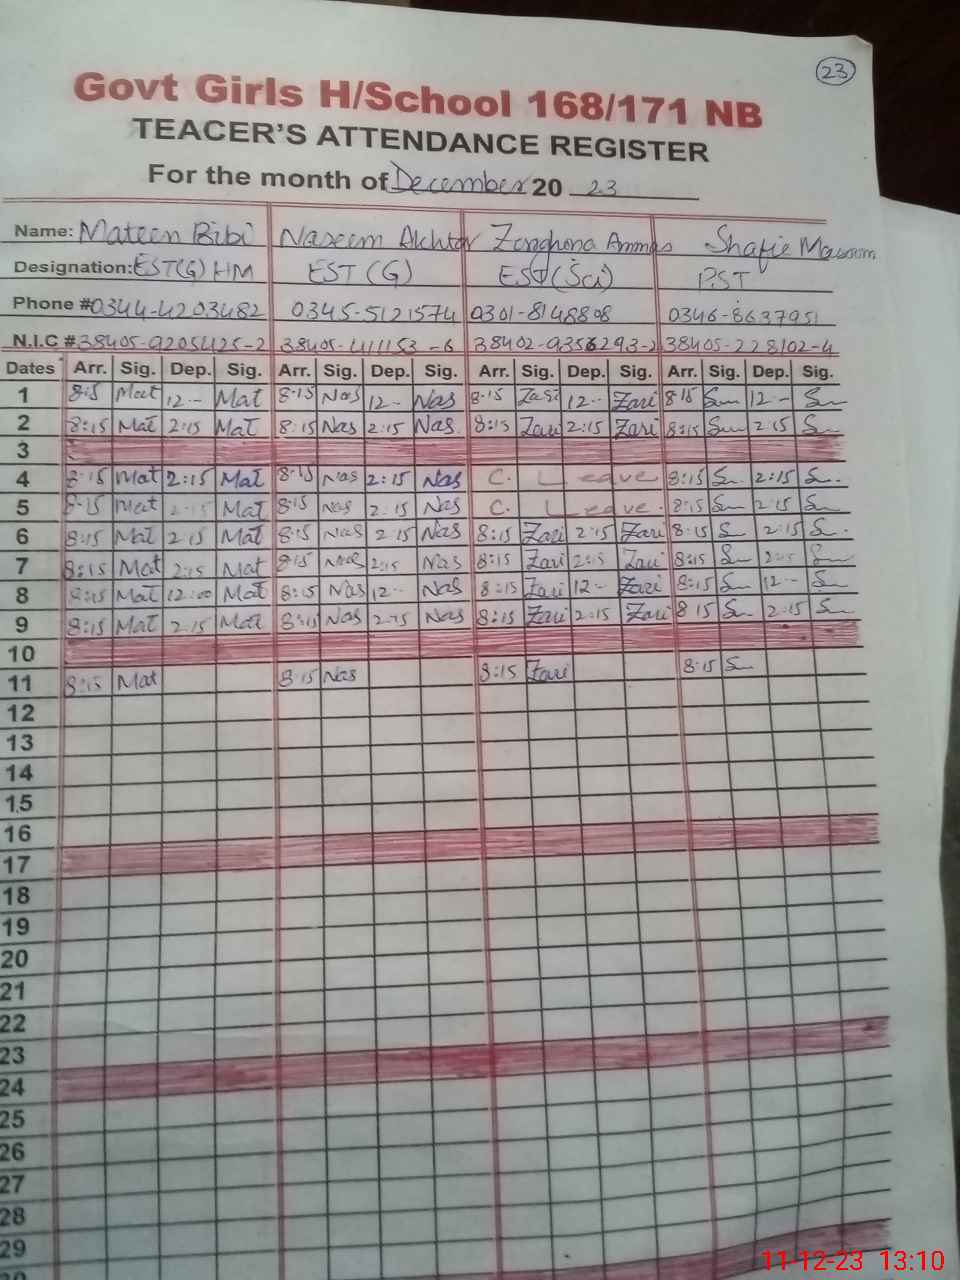 23
Govt Girls H/School 168/171 NB
TEACER'S ATTENDANCE REGISTER
For the month of December 20 23
Name: Mateen Bibi Naseem Akhtar Shafie
Designation: EST(G) HM EST (G) EST (Sci) PST
Phone #0344-4203482 0345-5121574 0301-8148808 0346-8637951
N.I.C #38405-9205425-2 38405-411153-6 38402-9356293-2 38405-228102-4
Dates Arr. Sig. Dep. Sig. Arr. Sig. Dep. Sig. Arr. Sig. Dep. Sig. Arr. Sig. Dep. Sig.
1 8:15 Mat 12-- Mat 8:15 Nas 12-- Nas 8:15 Zari 12-- Zari 8:15 12--
2 8:15 Mat 2:15 Mat 8:15 Nas 2:15 Nas 8:15 Zari 2:15 Zari 8:15 2:15
3
4 8:15 Mat 2:15 Mat 8:15 Nas 2:15 Nas C. Leave 8:15 2:15
5 8:15 Mat 2:15 Mat 8:15 Nas 2:15 Nas C. Leave. 8:15 2:15
6 8:15 Mat 2:15 Mat 8:15 Nas 2:15 Nas 8:15 Zari 2:15 Zari 8:15 2:15
7 8:15 Mat 2:15 Mat 8:15 Nas 2:15 Nas 8:15 Zari 2:15 Zari 8:15 2:15
8 8:15 Mat 12:00 Mat 8:15 Nas 12-- Nas 8:15 Zari 12-- Zari 8:15 12--
9 8:15 Mat 2:15 Mat 8:15 Nas 2:15 Nas 8:15 Zari 2:15 Zari 8:15 2:15
10
11 8:15 Mat 8:15 Nas 8:15 Zari 8:15
12
13
14
15
16
17
18
19
20
21
22
23
24
25
26
27
28
29
11-12-23 13:10